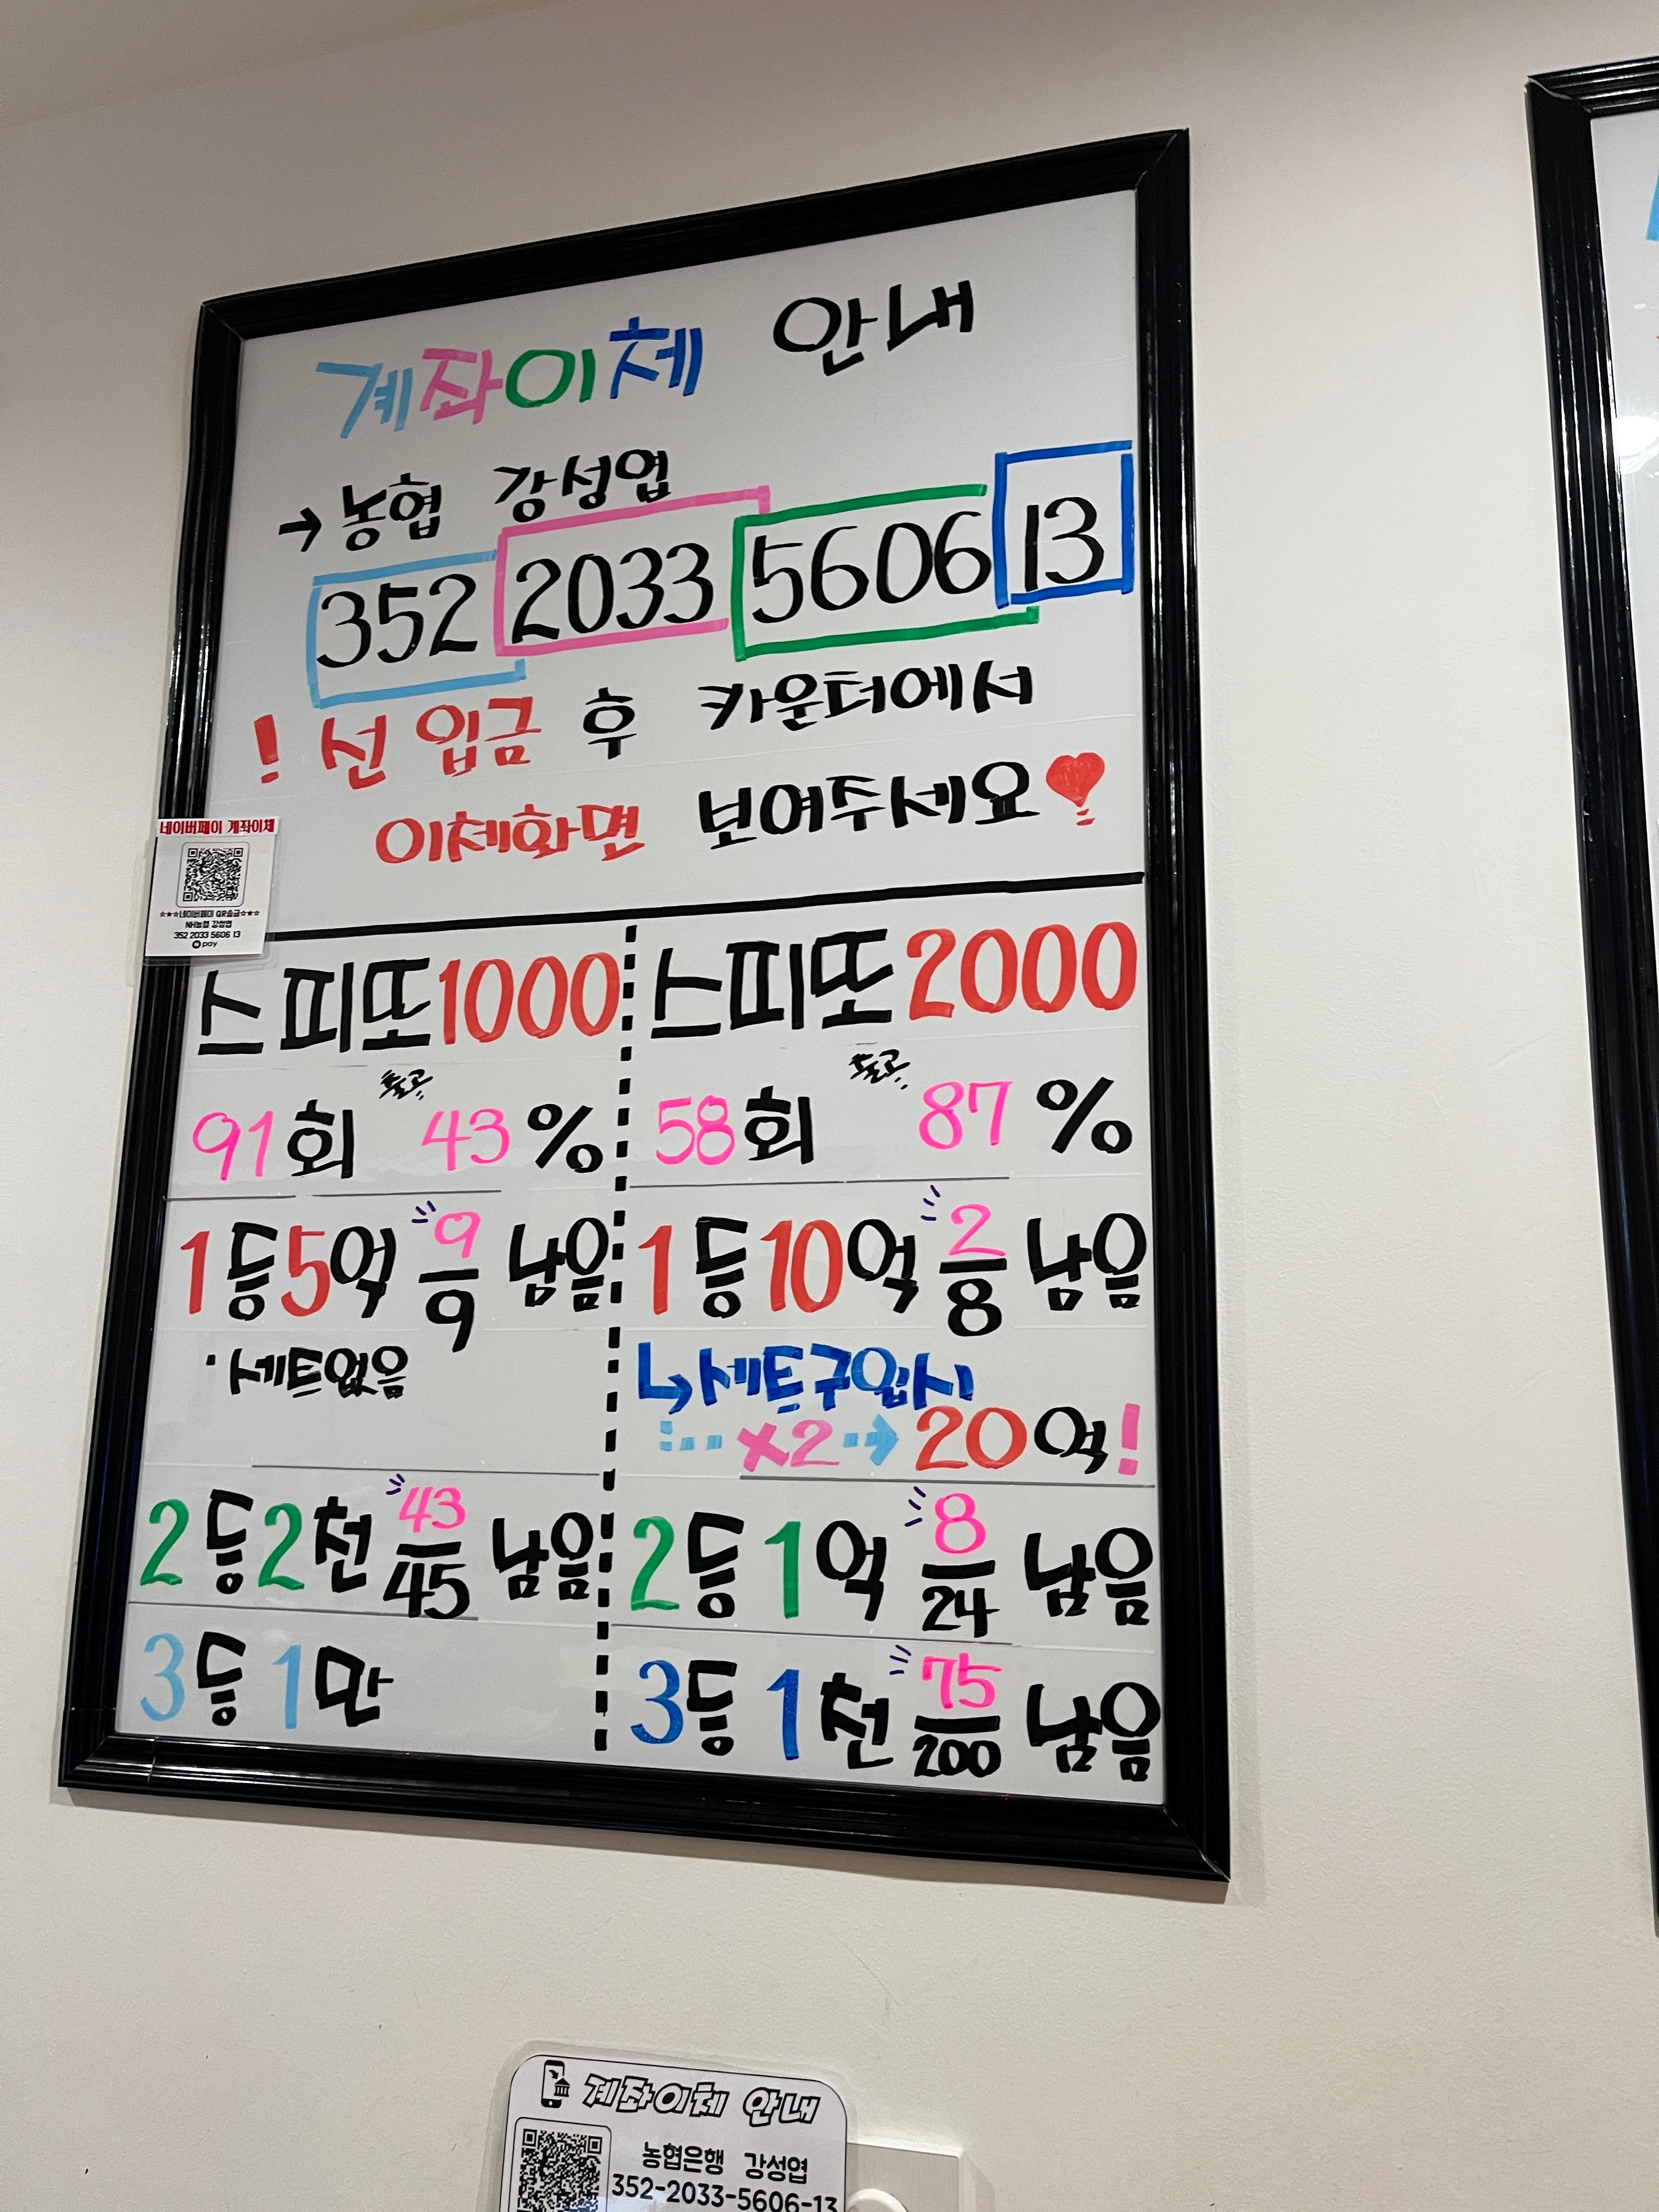 계좌이체 안내
→ 농협 강성엽
352 2033 5606 13
! 선 입금 후 카운터에서
이체화면 보여주세요
네이버페이 계좌이체
★★★네이버페이 QR송금★★★
NH농협 강성엽
352 2033 5606 13
N pay
스피또1000
출고
91회 43%
1등 5억 9/9 남음
·세트없음
2등 2천 43/45 남음
3등 1만
스피또2000
출고
58회 87%
1등 10억 2/8 남음
↳세트구입시
×2 → 20억!
2등 1억 8/24 남음
3등 1천 75/200 남음
계좌이체 안내
농협은행 강성엽
352-2033-5606-13